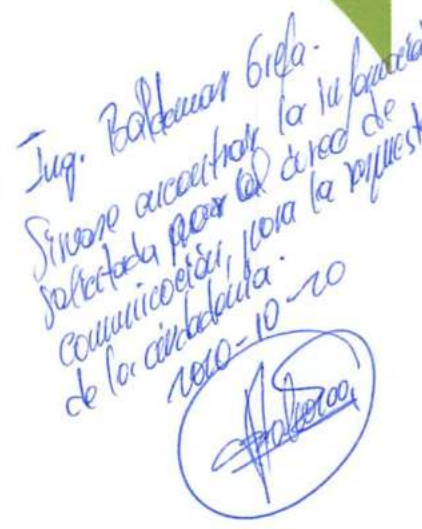 Ing. Baldemar Grefa.
Sirvase encontrar la información
solicitada por el área de
comunicación, para la respuesta
de la ciudadanía.
2020-10-20